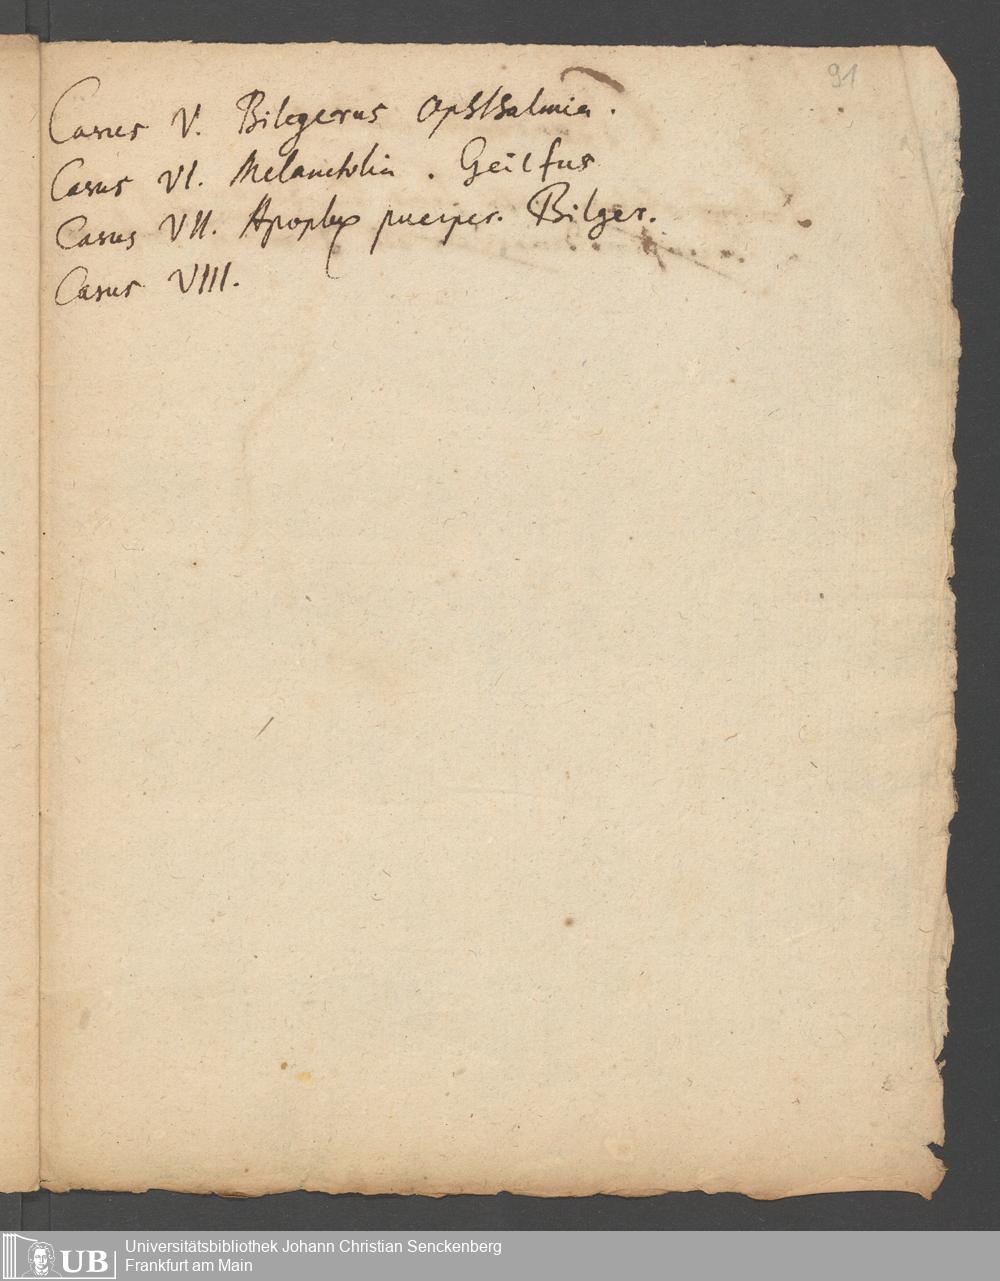 91
Casus V. Bilgerus Ophthalmia.
Casus VI. Melancholia. Geilfus
Casus VII. Apoplex puerper. Bilger.
Casus VIII.
UB
Universitätsbibliothek Johann Christian Senckenberg
Frankfurt am Main